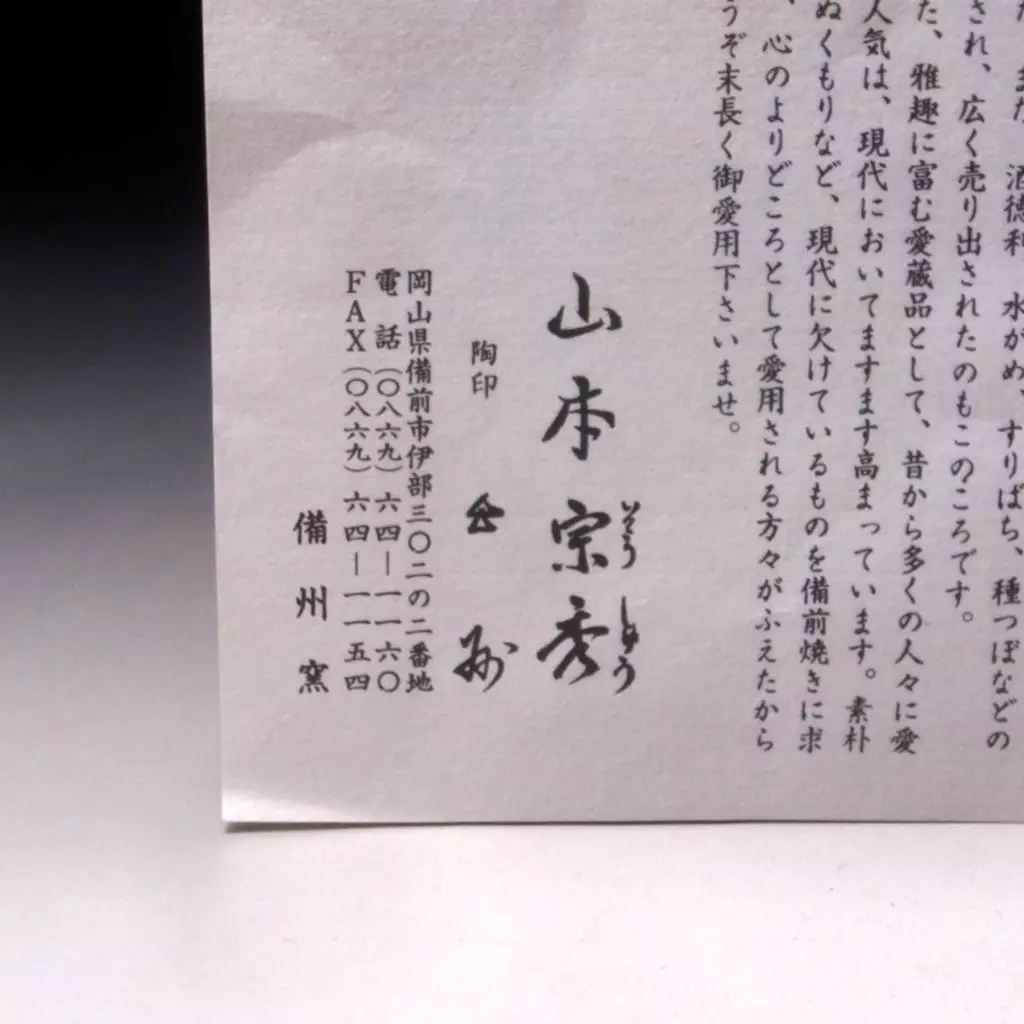 た、また、酒徳利、水がめ、すりばち、種つぼなどの
され、広く売り出されたのもこのころです。
た、雅趣に富む愛蔵品として、昔から多くの人々に愛
人気は、現代においてますます高まっています。素朴
ぬくもりなど、現代に欠けているものを備前焼きに求
、心のよりどころとして愛用される方々がふえたから
うぞ末長く御愛用下さいませ。
山本宗秀
そうしゅう
陶印
岡山県備前市伊部三〇二の二番地
電話(〇八六九)六四―一一六〇
FAX(〇八六九)六四―一一五四
備州窯